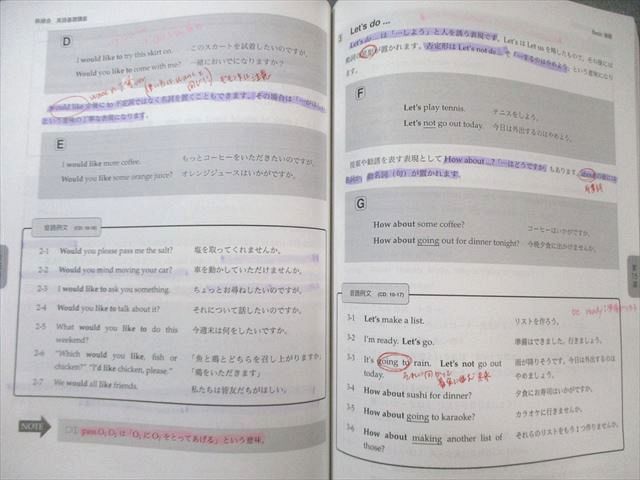 英語基礎講座
D
I would like to try this skirt on.　このスカートを試着したいのですが。
Would you like to come with me?　一緒においでになりますか?
would like の後に to 不定詞ではなく名詞を置くこともできます。その場合は
という意味の丁寧な表現になります。
E
I would like more coffee.　もっとコーヒーをいただきたいのですが。
Would you like some orange juice?　オレンジジュースはいかがですか。
音読例文 (CD: 10-16)
2-1　Would you please pass me the salt?　塩を取ってくれませんか。
2-2　Would you mind moving your car?　車を動かしていただけませんか。
2-3　I would like to ask you something.　ちょっとお尋ねしたいのですが。
2-4　Would you like to talk about it?　それについて話したいのですか。
2-5　What would you like to do this　今週末は何をしたいですか。
weekend?
2-6　"Which would you like, fish or　「魚と鶏とどちらを召し上がりますか」
chicken?" "I'd like chicken, please."　「鶏をいただきます」
2-7　We would all like friends.　私たちは皆友だちがほしい。
NOTE
pass O₁ O₂ は「O₁ に O₂ をとってあげる」という意味。
3　Let's do ...
Let's do ... は「〜しよう」と人を誘う表現です。Let's は Let us を略したもので、その後には
動詞の原形が置かれます。否定形は Let's not do ... で「〜するのはやめよう」という意味になり
ます。
F
Let's play tennis.　テニスをしよう。
Let's not go out today.　今日は外出するのはやめよう。
提案や勧誘を表す表現として How about ...?「〜はどうですか」もあります。about の後には
名詞か、動名詞(句)が置かれます。
G
How about some coffee?　コーヒーはいかがですか。
How about going out for dinner tonight?　今晩夕食に出かけませんか。
音読例文 (CD: 10-17)
3-1　Let's make a list.　リストを作ろう。
3-2　I'm ready. Let's go.　準備はできました。行きましょう。
3-3　It's going to rain. Let's not go out　雨が降りそうです。今日は外出するのは
today.　やめましょう。
3-4　How about sushi for dinner?　夕食にお寿司はいかがですか。
3-5　How about going to karaoke?　カラオケに行きませんか。
3-6　How about making another list of　それらのリストをもう1つ作りませんか。
those?